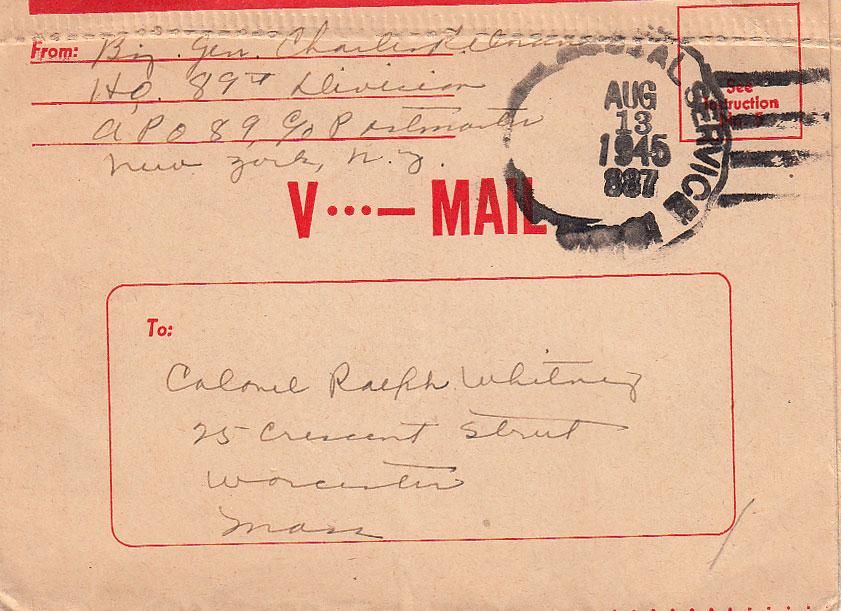 From: Brig. Gen. Charles
HQ. 89th Division
APO 89, C/o Postmaster
New York, N.Y.
POSTAL SERVICE
AUG
13
1945
887
See
Instruction
V ···— MAIL
To:
Colonel Ralph Whitney
25 Crescent Street
Worcester
Mass